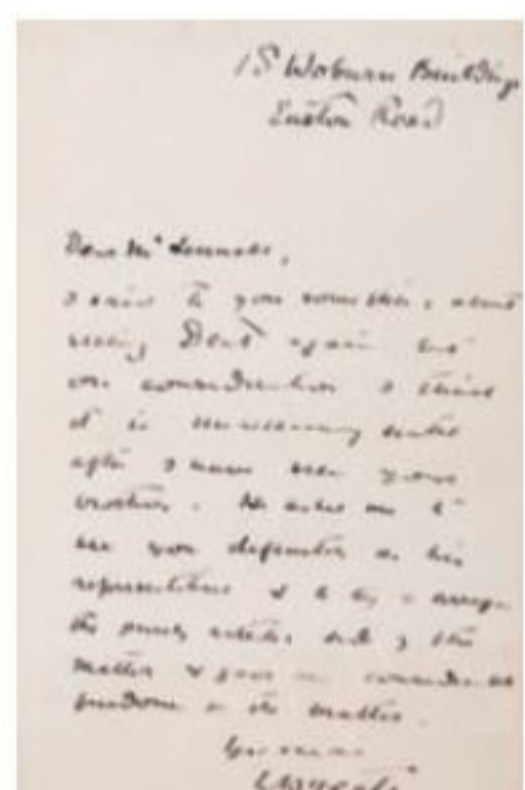 18 Woburn Buildings
Euston Road
Dear Mr
I said to you something about
seeing Dent again but
on consideration I think
it is unnecessary until
after I have seen your
brother. He asked me to
see you definitely as his
representative & to try & arrange
the purely artistic side of the
matter & gave me considerable
freedom in the matter.
Yours
WB Yeats